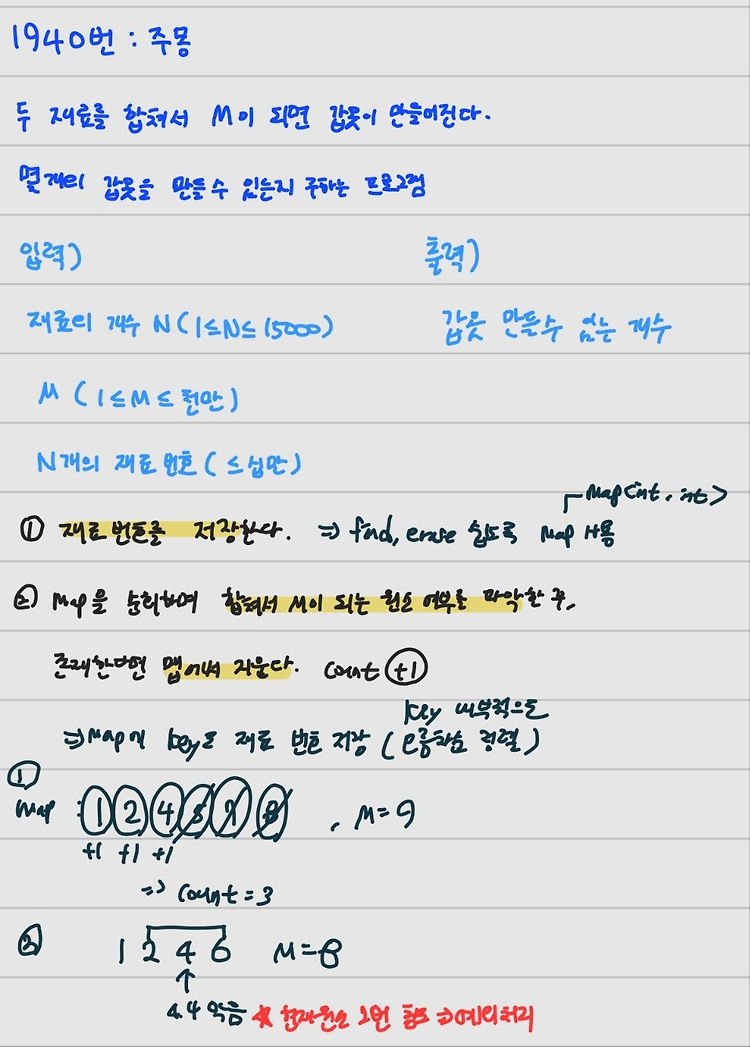 1940번 : 주몽
두 재료를 합쳐서 M이 되면 갑옷이 만들어진다.
몇개의 갑옷을 만들수 있는지 구하는 프로그램
입력)
출력)
재료의 개수 N (1≤N≤15000)
갑옷 만들수 있는 개수
M (1≤M≤천만)
N개의 재료 번호 (≤십만)
Map<int, int>
① 재료 번호를 저장한다. ⇒ find, erase 쉽도록 Map 사용
② Map을 순회하며 합쳐서 M이 되는 원소 여부를 파악한 후,
존재한다면 맵에서 지운다. count +1
key 내부적으로
⇒ Map에 key로 재료 번호 저장 (오름차순 정렬)
①
Map : 1 2 4 5 7 8 , M=9
+1 +1 +1
=> count = 3
② 1 2 4 6 M=8
↑
4.4 있음 * 현재원소 2번 참조 ⇒ 예외처리